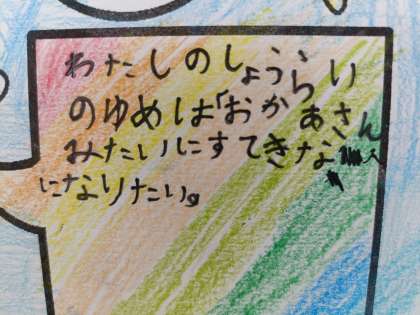 わたしのしょうらい
のゆめは「おかあさん
みたいにすてきな人
になりたい。